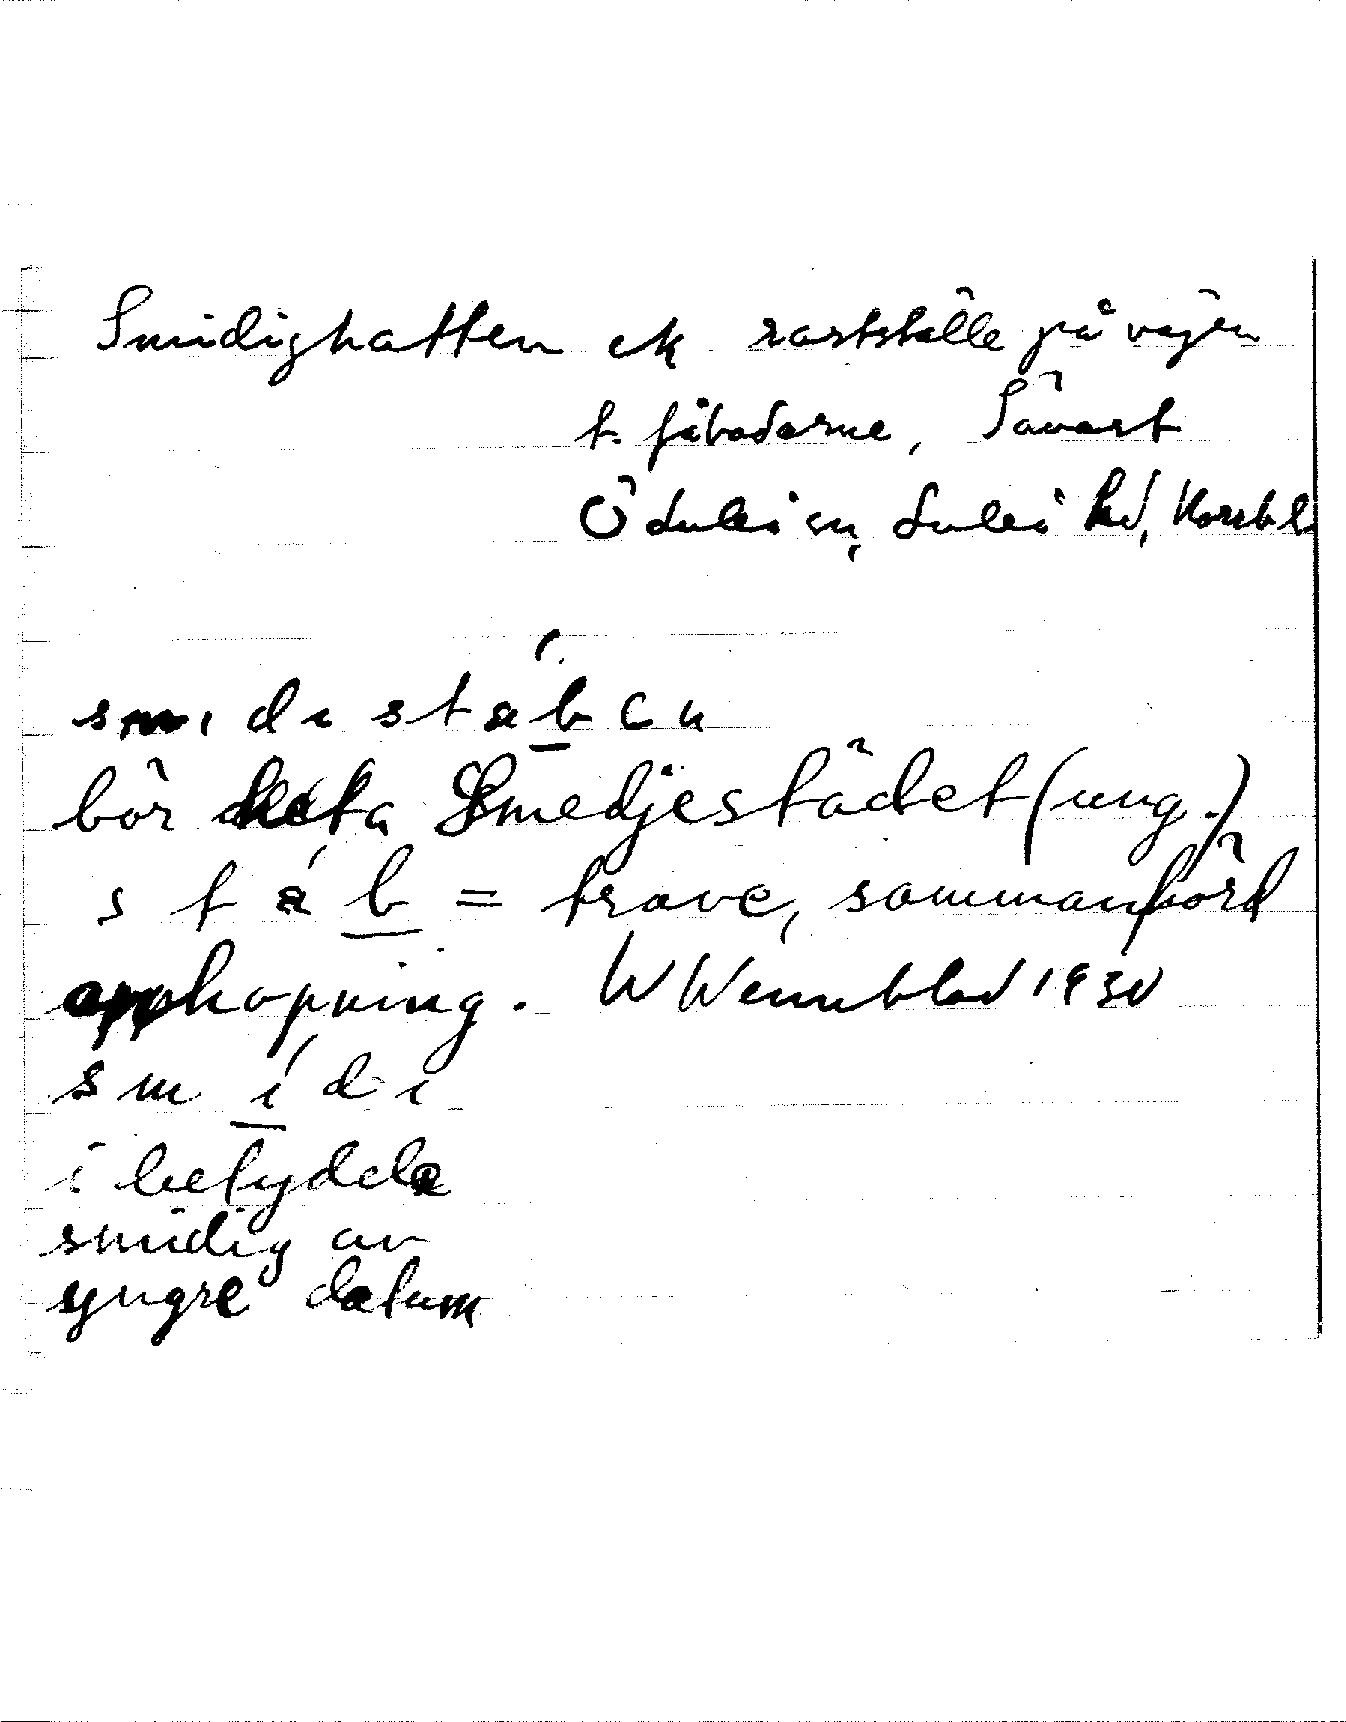 Smidighatten ek rastställe på vägen
t. fäbodarne, Sävast
Ö Luleå sn, Luleå hd, Norrb l
smidistaben
bör heta Smedjestädet (ung.)
stab = trave, sammanförd
upphopning. W Wennblad 1930
smidi
i betydelse
smidig av
yngre datum